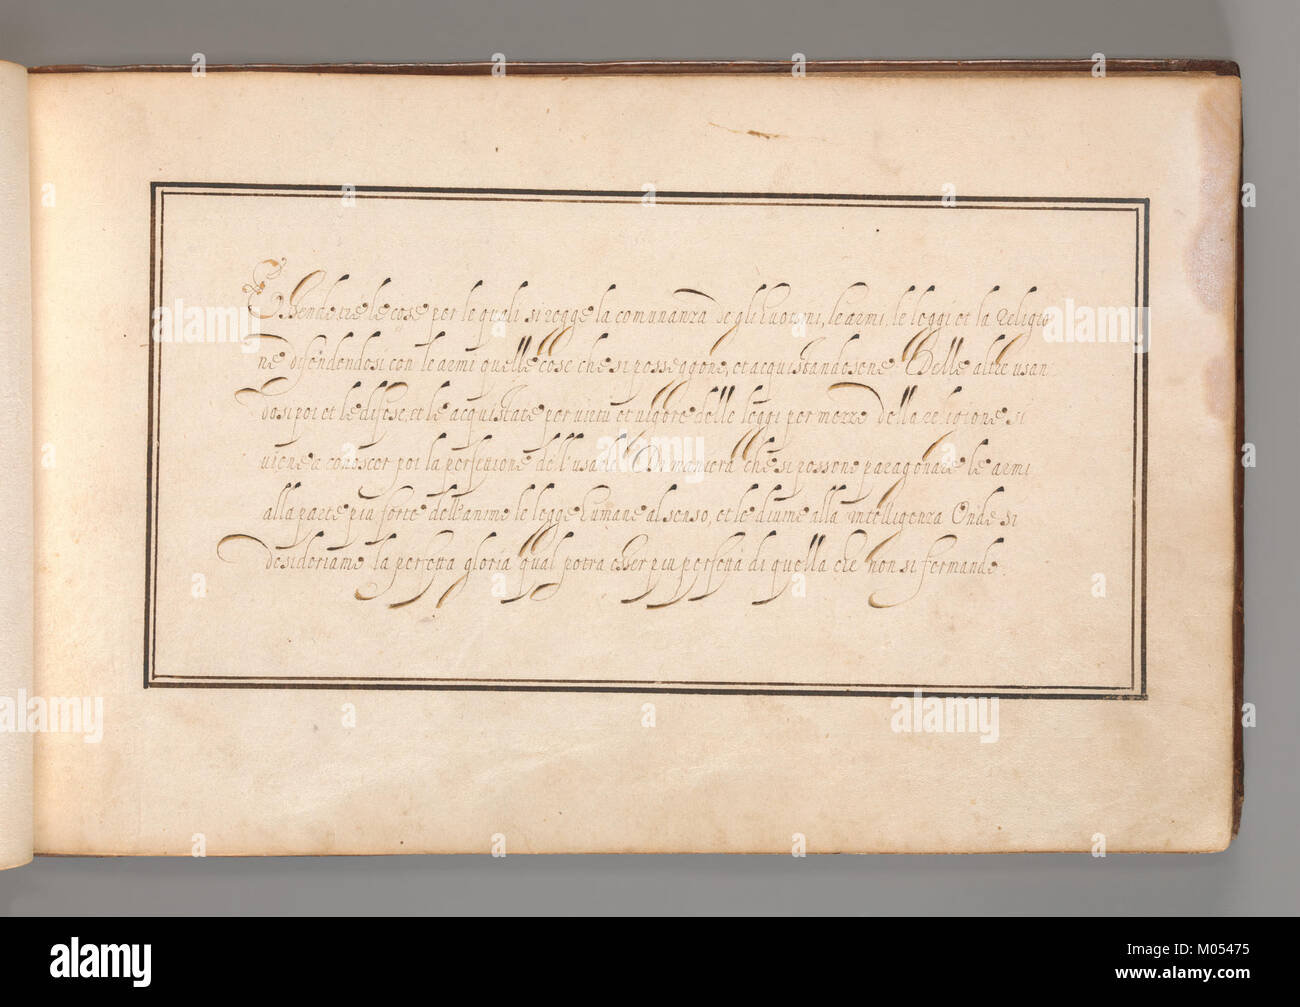 Essendo tre le cose per le quali si regge la comunanza de gli huomini, le armi, le leggi et la religio
ne difendendosi con le armi quelle cose che si posseggono, et acquistandosene Delle altre usan
dosi poi et le difese, et le acquistate per virtù et vigore delle leggi per mezzo della religione si
viene a conoscer poi la perfettione dell'usarle Di maniera che si possono paragonare le armi
alla parte piu forte dell'animo le legge humane al senso, et le divine alla intelligenza Onde si
desideriamo la perfetta gloria qual potra esser piu perfetta di quella che non si fermando
a
alamy
alamy stock photo
Image ID: M05475
www.alamy.com